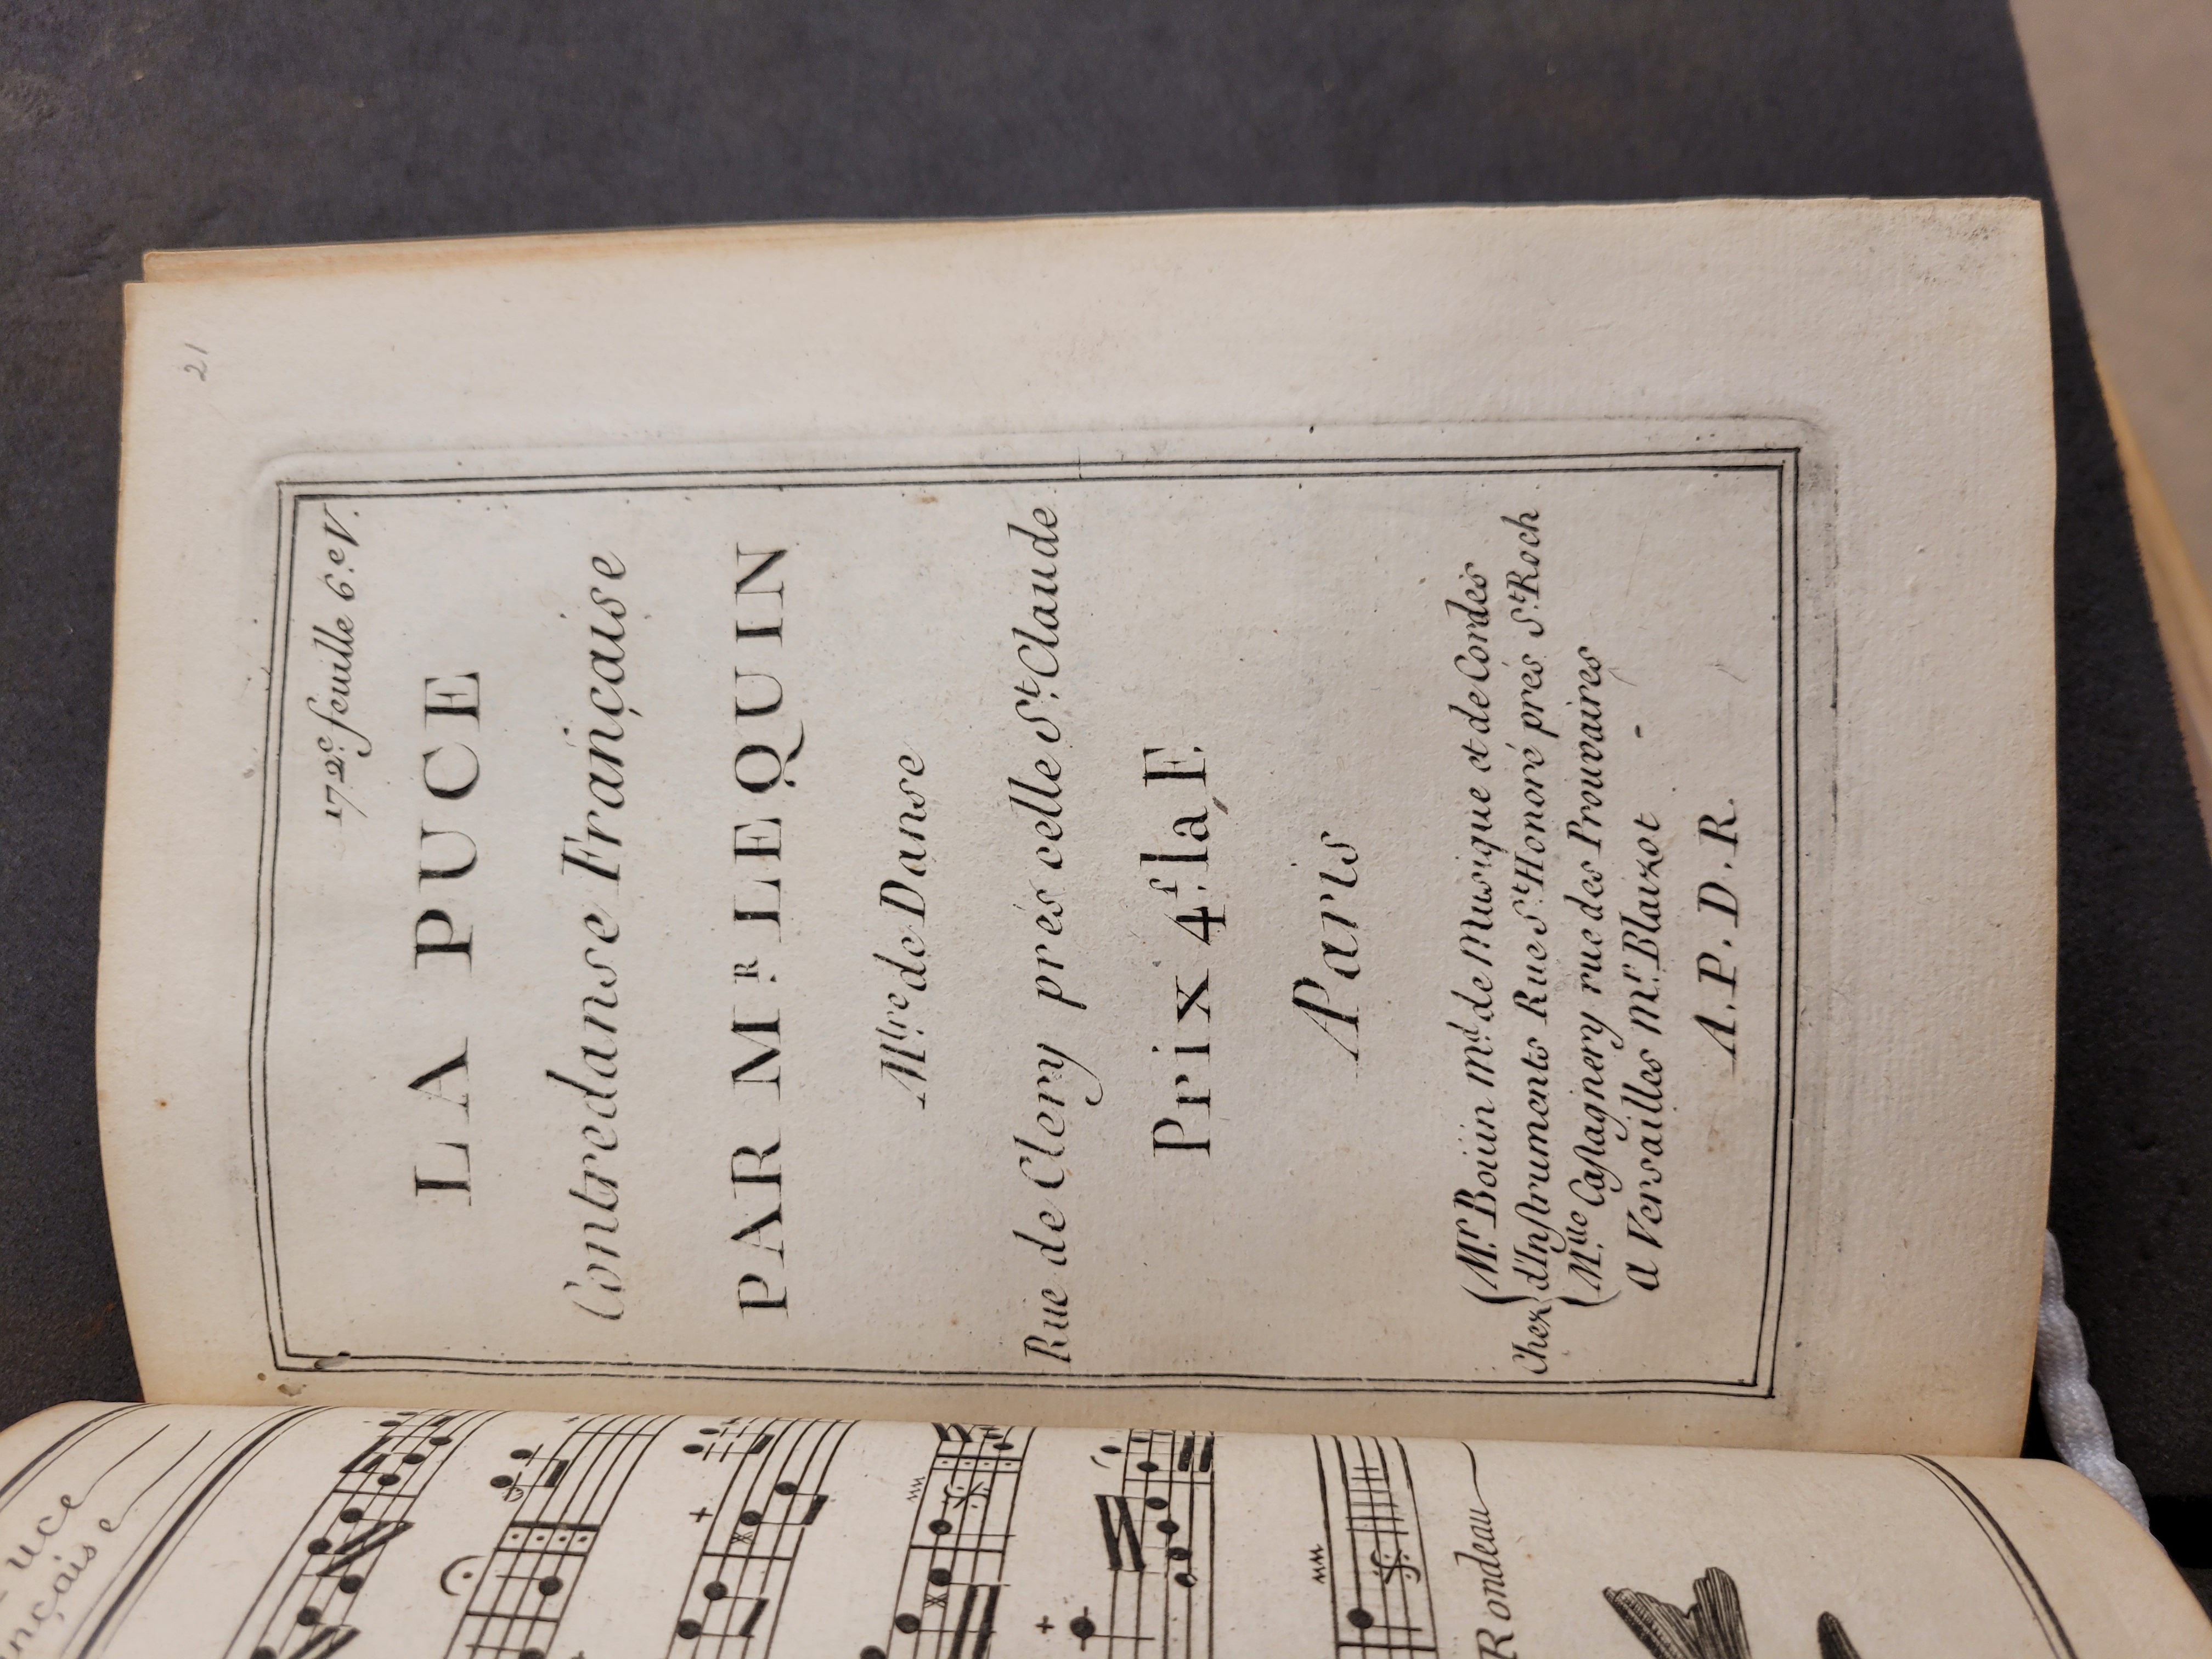 21
172.e feuille 6.e V.
LA PUCE
Contredanse Française
PAR M.R LEQUIN
M.tre de Danse
Rue de Clery prés celle S.t Claude
Prix 4.f la F.
A Paris
Chez { M.r Boüin m.d de Musique et de Cordes
d'Instruments Rue S.t Honoré prés S.t Roch
M.lle Castagnery rue des Prouvaires
a Versailles m.r Blaizot
A. P. D. R.
uce
nçaise
Rondeau